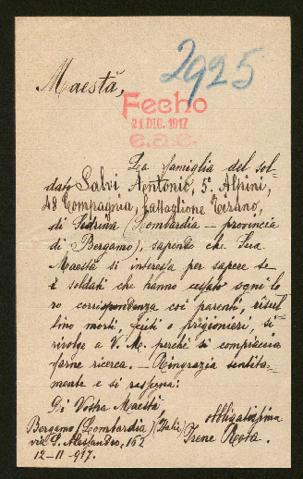 2925
Maestà,
Fecho
21 DIC. 1917
e.a.c.
La famiglia del sol-
dato Salvi Antonio, 5º Alpini,
48 Compagnia, battaglione Tirano,
di Sedrina (Lombardia - provincia
di Bergamo), sapendo che Sua
Maestà si interessa per sapere se
i soldati che hanno cessato ogni lo-
ro corrispondenza coi parenti, risul-
tino morti, feriti o prigionieri, si
rivolge a V. M. perchè si compiaccia
farne ricerca. - Ringrazia sentita-
mente e si rassegna:
Di Vostra Maestà,
obbligatissima
Bergamo (Lombardia) (Italia)
Irene Rota.
via S. Alessandro, 162
12-11-917.